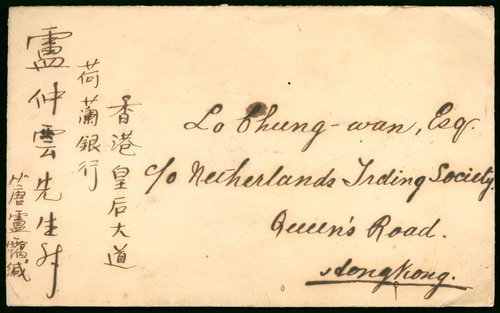 香港皇后大道
荷蘭銀行
盧仲雲先生
唐盧緘
Lo Chung-wan, Esq.
c/o Netherlands Trding Society,
Queen's Road.
Hongkong.